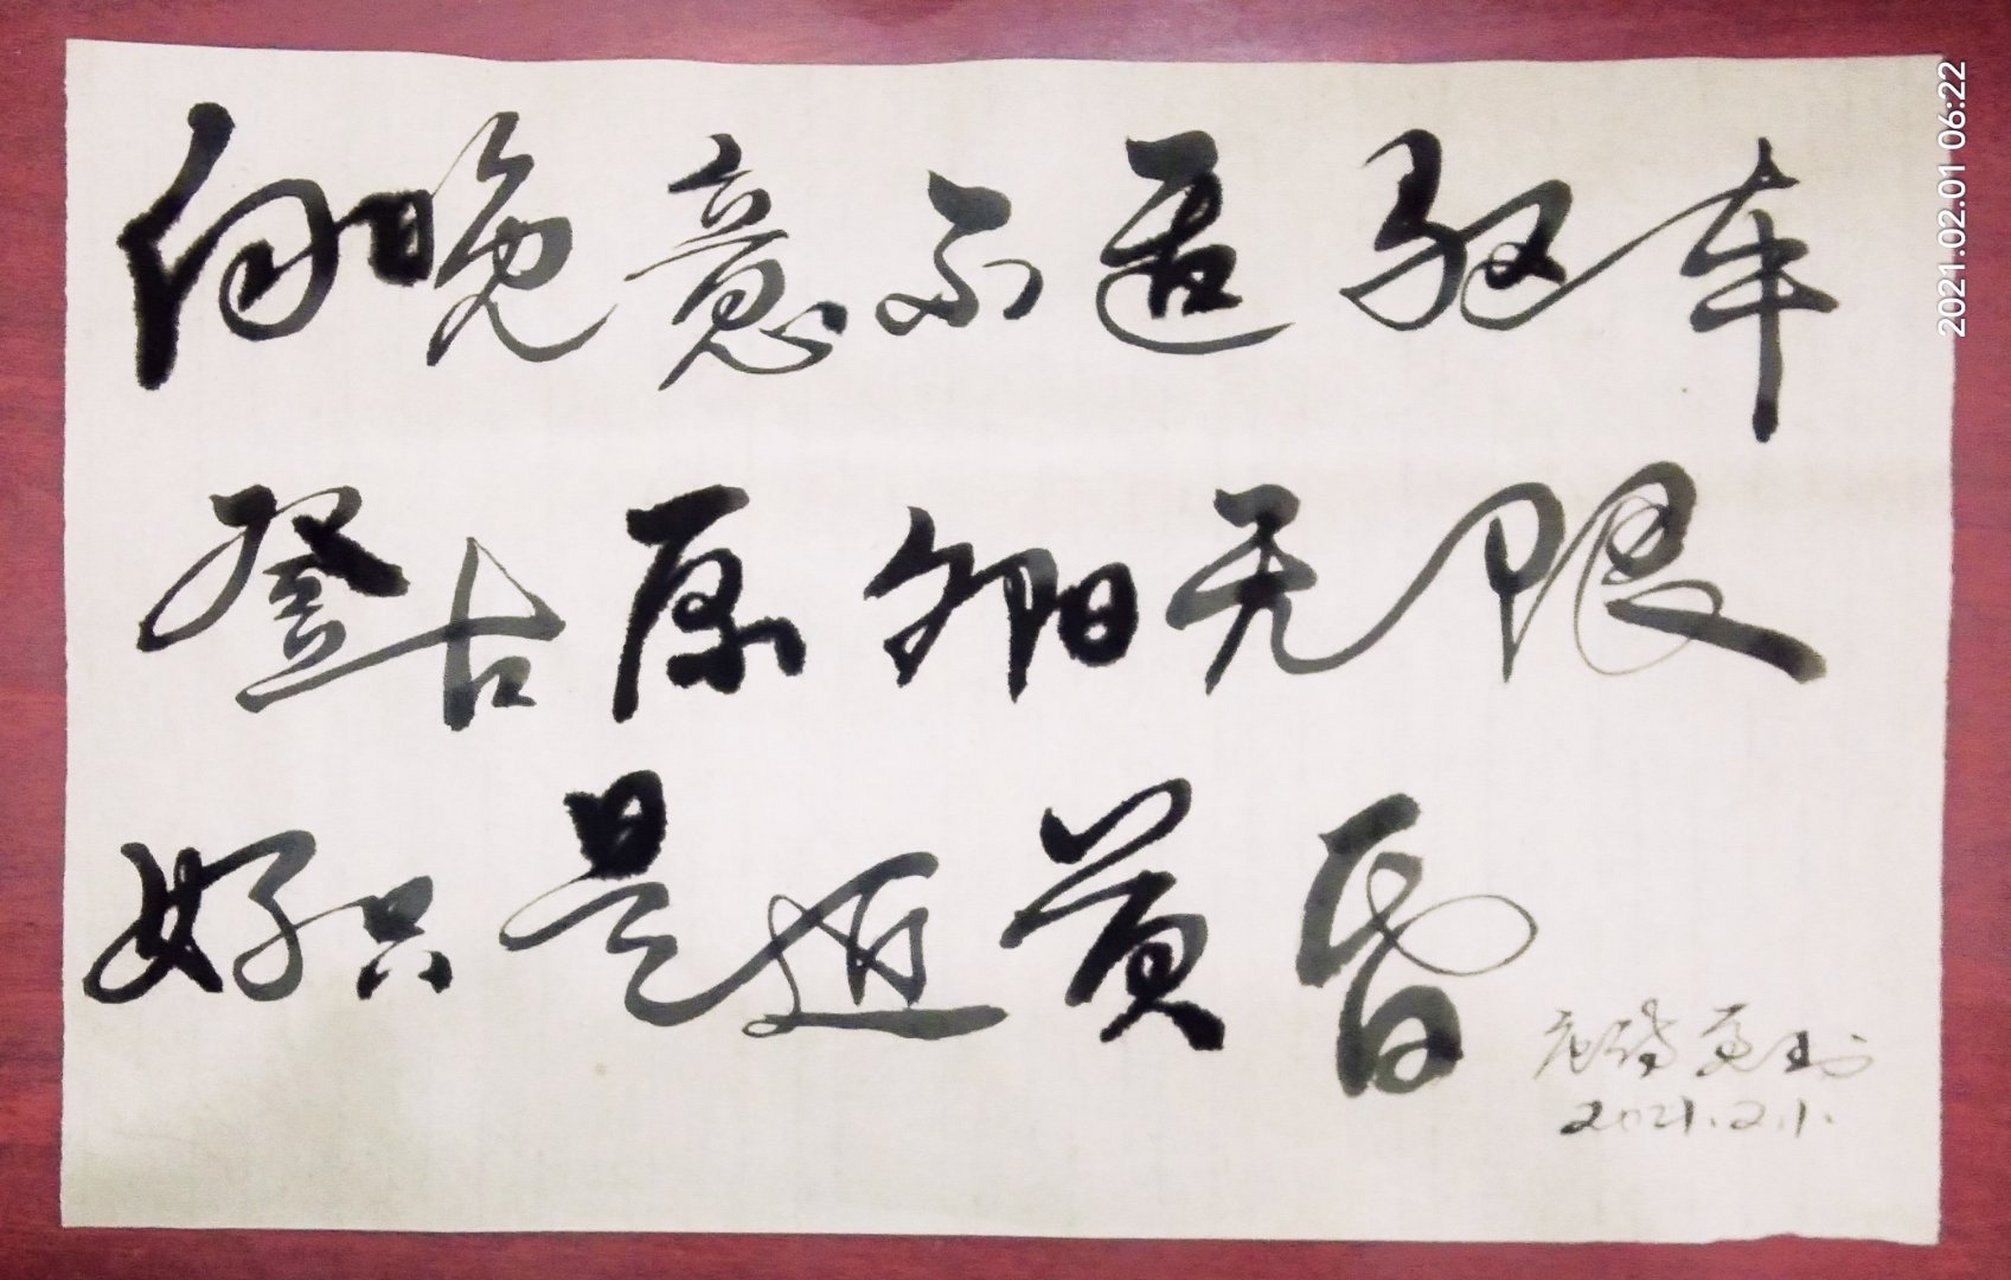 向晚意不适驱车
登古原夕阳无限
好只是近黄昏
唐诗
2021.2.1.
2021.02.01 06:22